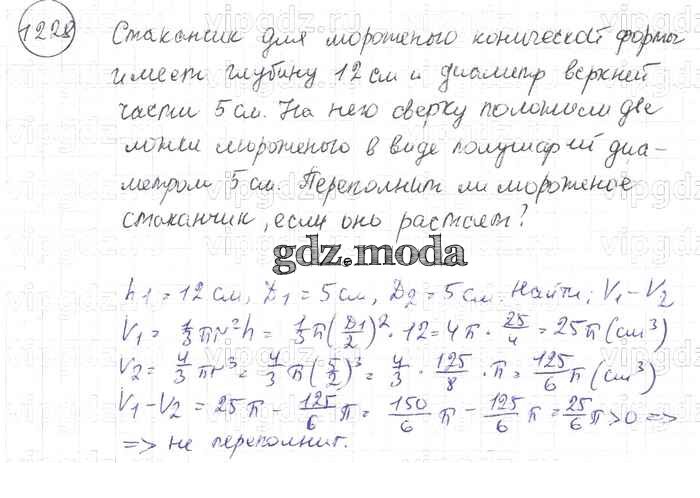 1228
Стаканчик для мороженого конической формы
имеет глубину 12 см и диаметр верхней
части 5 см. На него сверху положили две
ложки мороженого в виде полушарий диа-
метром 5 см. Переполнит ли мороженое
стаканчик, если оно растает?
gdz.moda
h1 = 12 см, D1 = 5 см, D2 = 5 см. Найти: V1 - V2
V1 = 1/3 πr²h = 1/3 π(D1/2)² · 12 = 4π · 25/4 = 25π (см³)
V2 = 4/3 πr³ = 4/3 π(5/2)³ = 4/3 · 125/8 · π = 125/6 π (см³)
V1 - V2 = 25π - 125/6 π = 150/6 π - 125/6 π = 25/6 π > 0 =>
=> не переполнит.